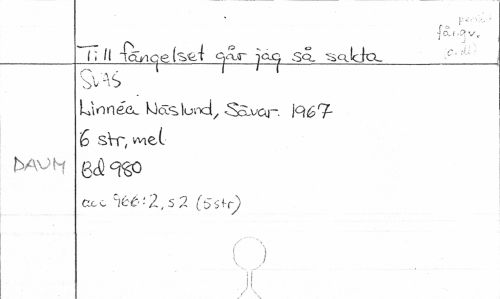 fång.v.
Till fängelset går jag så sakta
SVAS
Linnéa Näslund, Sävar. 1967
6 str, mel
DAUM Bd 980
acc 966:2, s 2 (5 str)